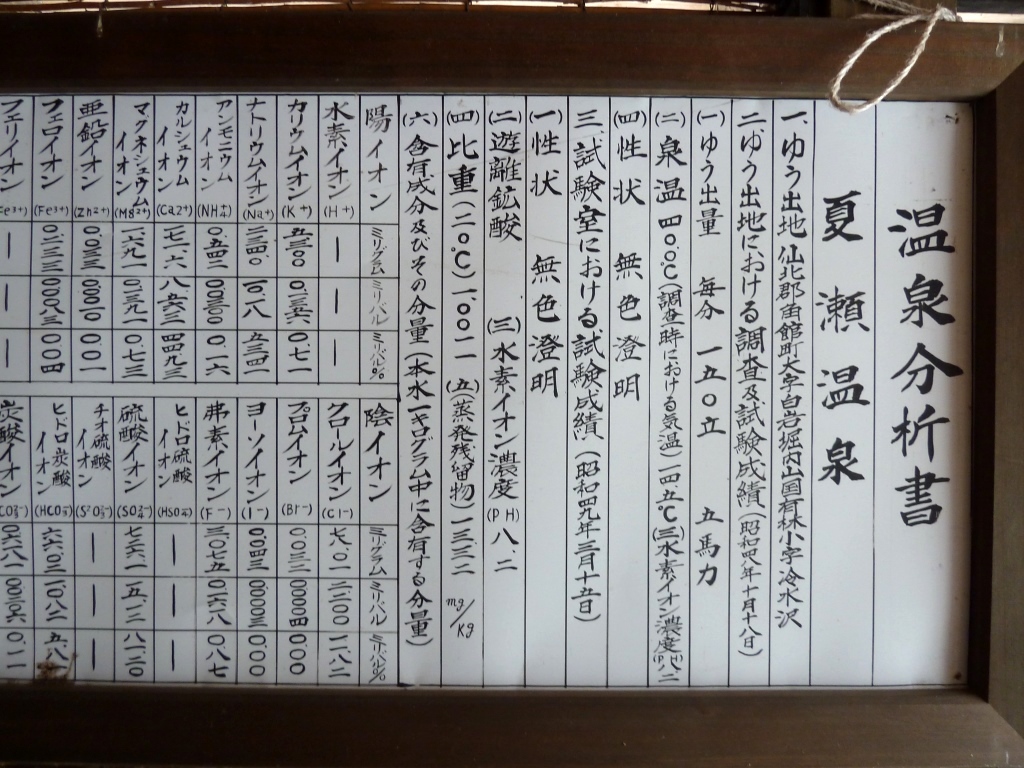 温泉分析書
夏瀬温泉
一、ゆう出地 仙北郡田館町大字白岩堀内山国有林小字冷水沢
二、ゆう出地における調査及試験成績(昭和四八年十月十八日)
(一)ゆう出量 毎分 一五〇立 五馬力
(二)泉温 四〇.〇℃(調査時における気温)一四.五℃(三)水素イオン濃度(PH)八.二
(四)性状 無色澄明
三、試験室における試験成績(昭和四九年三月十五日)
(一)性状 無色澄明
(二)遊離鉱酸 (三)水素イオン濃度(PH)八.二
(四)比重(二〇.℃)一.〇〇一一 (五)(蒸発残留物)一三三二 mg/kg
(六)含有成分及びその分量(本水一キログラム中に含有する分量)
陽イオン ミリグラム ミリバル ミリバル% 陰イオン ミリグラム ミリバル ミリバル%
水素イオン (H+) — — — クロールイオン (Cl-) 七八.〇一 二.二〇〇 一一.八二
カリウムイオン (K+) 五.三〇〇 〇.一三五六 〇.七一 ブロムイオン (Br-) 〇.〇三二 〇.〇〇〇四 〇.〇〇
ナトリウムイオン (Na+) 二三四.〇 一〇.一八 五三.四一 ヨーソイオン (I-) 〇.〇四三 〇.〇〇〇三 〇.〇〇
アンモニウムイオン (NH4+) 〇.五四二 〇.〇三〇〇 〇.一六 弗素イオン (F-) 三.〇七五 〇.一六一八 〇.八七
カルシュウムイオン (Ca2+) 一七一.六 八.五六三 四四.九三 ヒドロ硫酸イオン (HSO4-) — — —
マグネシュウムイオン (Mg2+) 一.六九一 〇.一三九一 〇.七三 硫酸イオン (SO42-) 七二六.一 一五.一二 八一.二〇
亜鉛イオン (Zn2+) 〇.〇三三 〇.〇〇一〇 〇.〇一 チオ硫酸イオン (S2O32-) — — —
フェロイオン (Fe3+) 〇.二三三 〇.〇〇八三 〇.〇四 ヒドロ炭酸イオン (HCO3-) 六六.〇三 一.〇八二 五.八一
フェリイオン (Fe3+) — — — 炭酸イオン (CO32-) 〇.六一八一 〇.〇二〇六 〇.一一